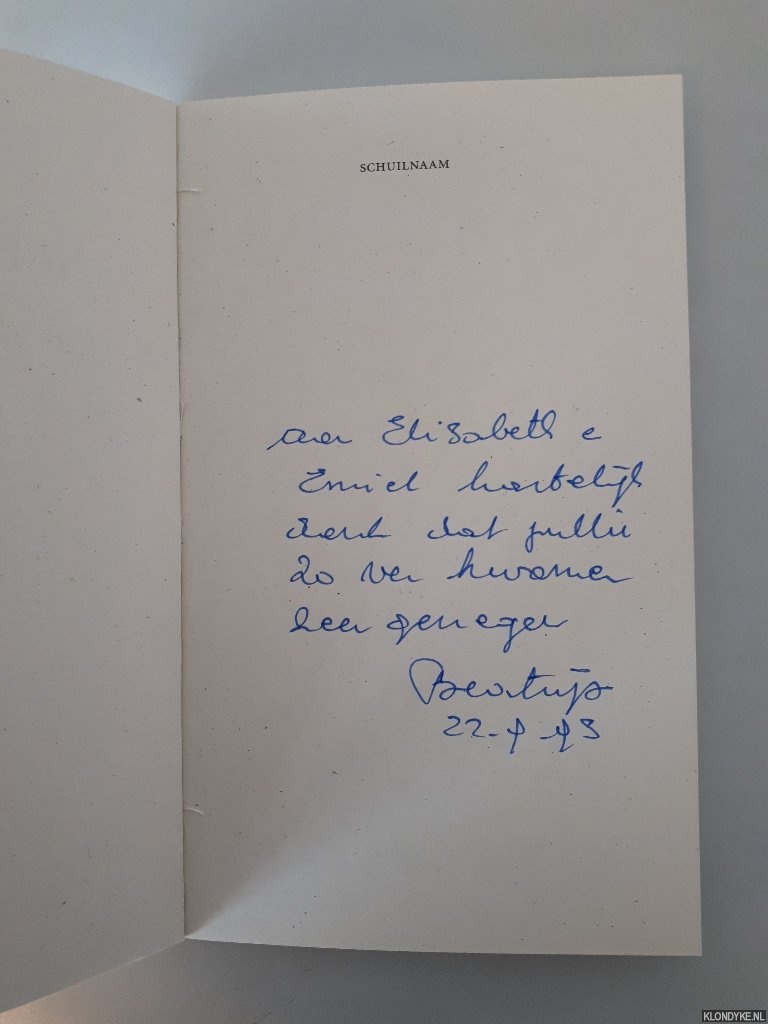 SCHUILNAAM
aan Elisabeth e
Emiel hartelijk
dank dat jullie
zo ver kwamen
zeer genegen
Beatrijs
22-9-93
KLONDYKE.NL